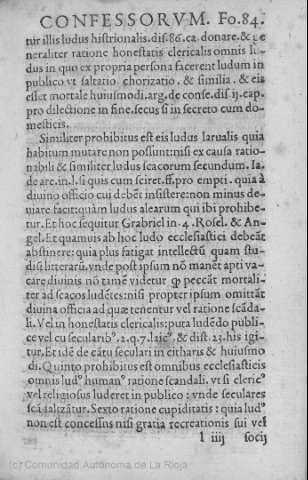 CONFESSORVM. Fo.84.
tur illis ludus histrionalis.dis.86.ca. donare.& ge
neraliter ratione honestatis clericalis omnis lu
dus in quo ex propria persona facerent ludum in
publico vt saltatio chorizatio. & similia. & eis
esset mortale huiusmodi.arg.de conse.dis ij.cap.
pro dilectione in fine.secus si in secreto cum do-
mesticis.
Similiter prohibitus est eis ludus larualis quia
habitum mutare non possunt:nisi ex causa ratio-
nabili & similiter ludus scacorum secundum. Ia.
de are.in.l.si quis cum sciret.ff.pro empti. quia à
diuino officio cui debēt insistere:non minus de-
uiare facit:quàm ludus alearum qui ibi prohibe-
tur.Et hoc sequitur Grabriel in.4.Rosel.& An-
gel.Et quamuis ab hoc ludo ecclesiastici debeāt
abstinere: quia plus fatigat intellectū quam stu-
diū litterarū.vnde post ipsum nō manēt apti va-
care diuinis nō tamē videtur ꝙ peccāt mortali-
ter ad scacos ludētes:nisi propter ipsum omittāt
diuina officia ad quæ tenentur vel ratione scāda-
li. Vel in honestatis clericalis:puta ludēdo publi-
ce vel cu secularibꝰ.2.q.7.laicꝰ.& dist.23.his igi-
tur.Et idē de cātu seculari in citharis & huiusmo
di.Quinto prohibitus est omnibus ecclesiasticis
omnis ludꝰ humanꝰ ratione scandali. vt si clericꝰ
vel religiosus luderet in publico : vnde seculares
scādalizātur.Sexto ratione cupiditatis : quia ludꝰ
non est concessus nisi gratia recreationis sui vel
l iiij socij
(c) Comunidad Autónoma de La Rioja